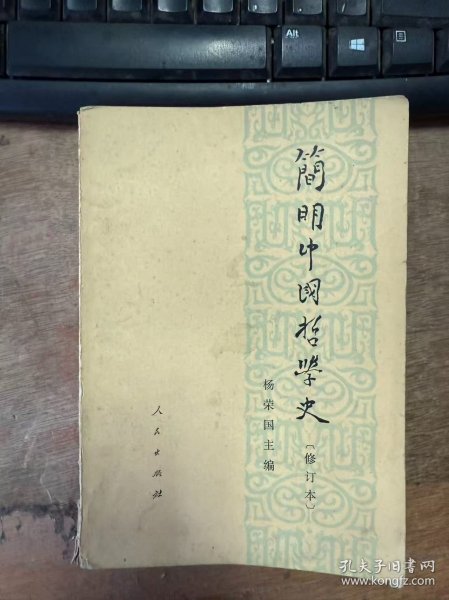 Alt
簡明中國哲學史
〔修订本〕
杨荣国主编
人民出版社
孔夫子旧书网
www.kongfz.com